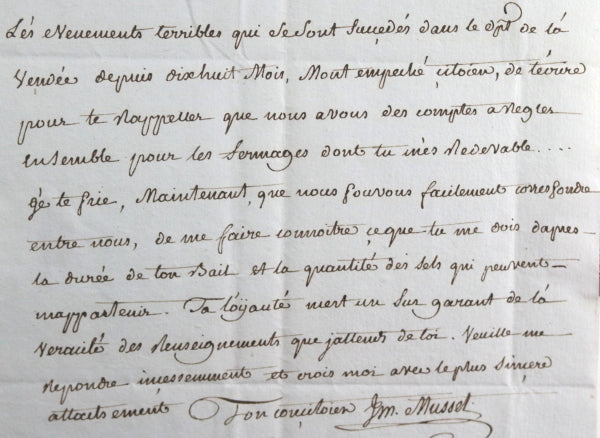 Les evenements terribles qui se sont succedés dans le dpt de la
Vendée depuis dixhuit mois, mont empeché çitoien, de técrire
pour te rappeller que nous avons des comptes a regler
ensemble pour les fermages dont tu mès redevable....
gé te prie, maintenant, que nous pouvons facilement correspondre
entre nous, de me faire connoitre çe que tu me dois dapres
la durée de ton Bail et la quantité des sels qui peuvent
mappartenir. Ta loÿauté mest un sur garant de la
veracité des renseignements que jattens de toi. Veuille me
repondre incessemment et crois moi avec le plus sinçere
attachement Ton conçitoien Jm. Musset